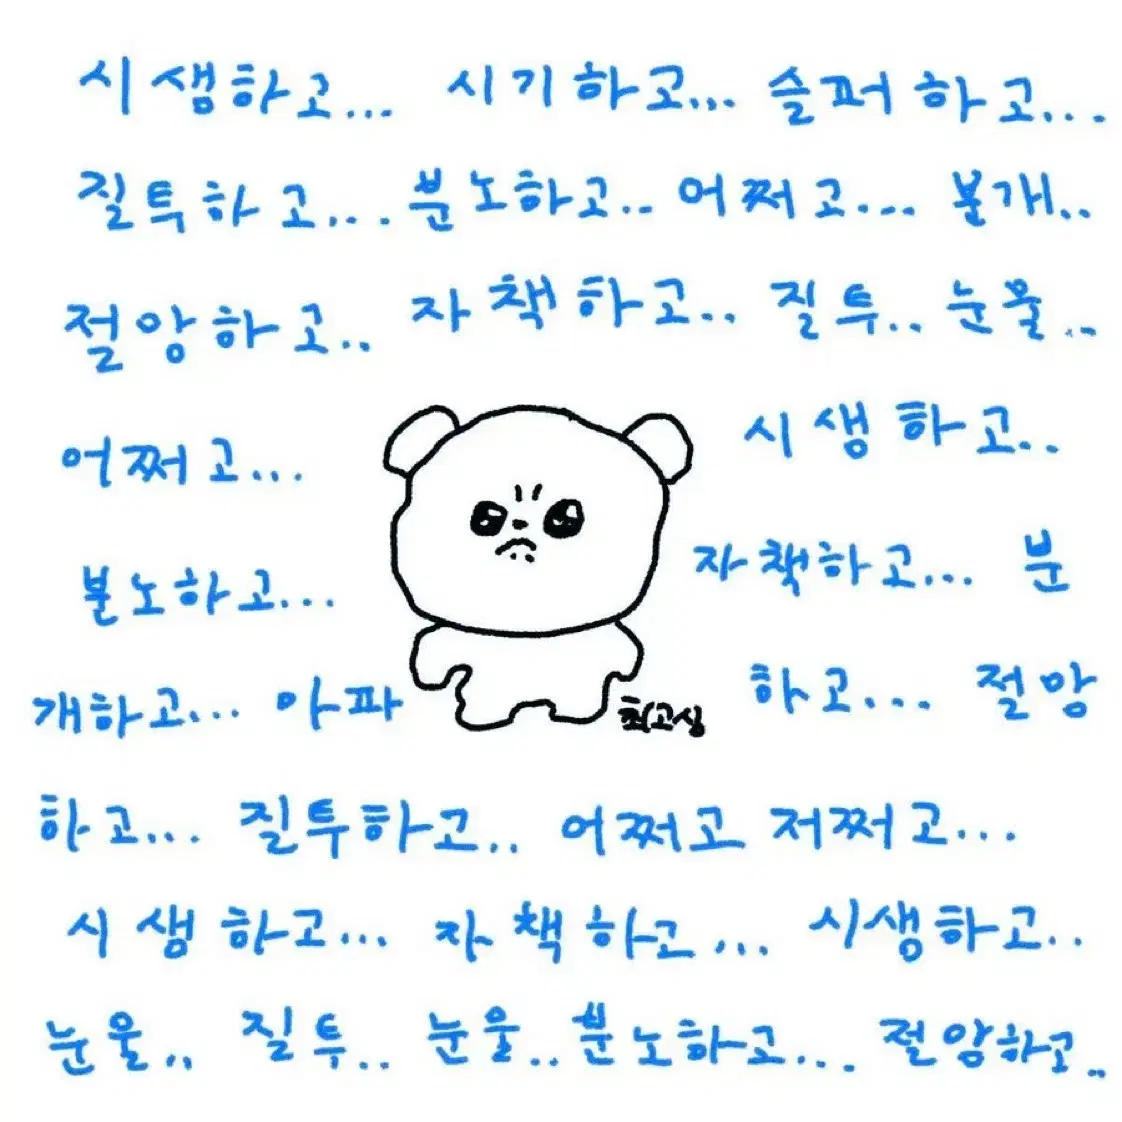 시샘하고... 시기하고... 슬퍼하고...
질투하고... 분노하고.. 어쩌고... 분개..
절망하고.. 자책하고.. 질투.. 눈물..
어쩌고... 시샘하고..
분노하고... 자책하고... 분
개하고... 아파 하고... 절망
최고심
하고... 질투하고.. 어쩌고 저쩌고...
시샘하고... 자책하고... 시샘하고..
눈물.. 질투.. 눈물.. 분노하고... 절망하고..